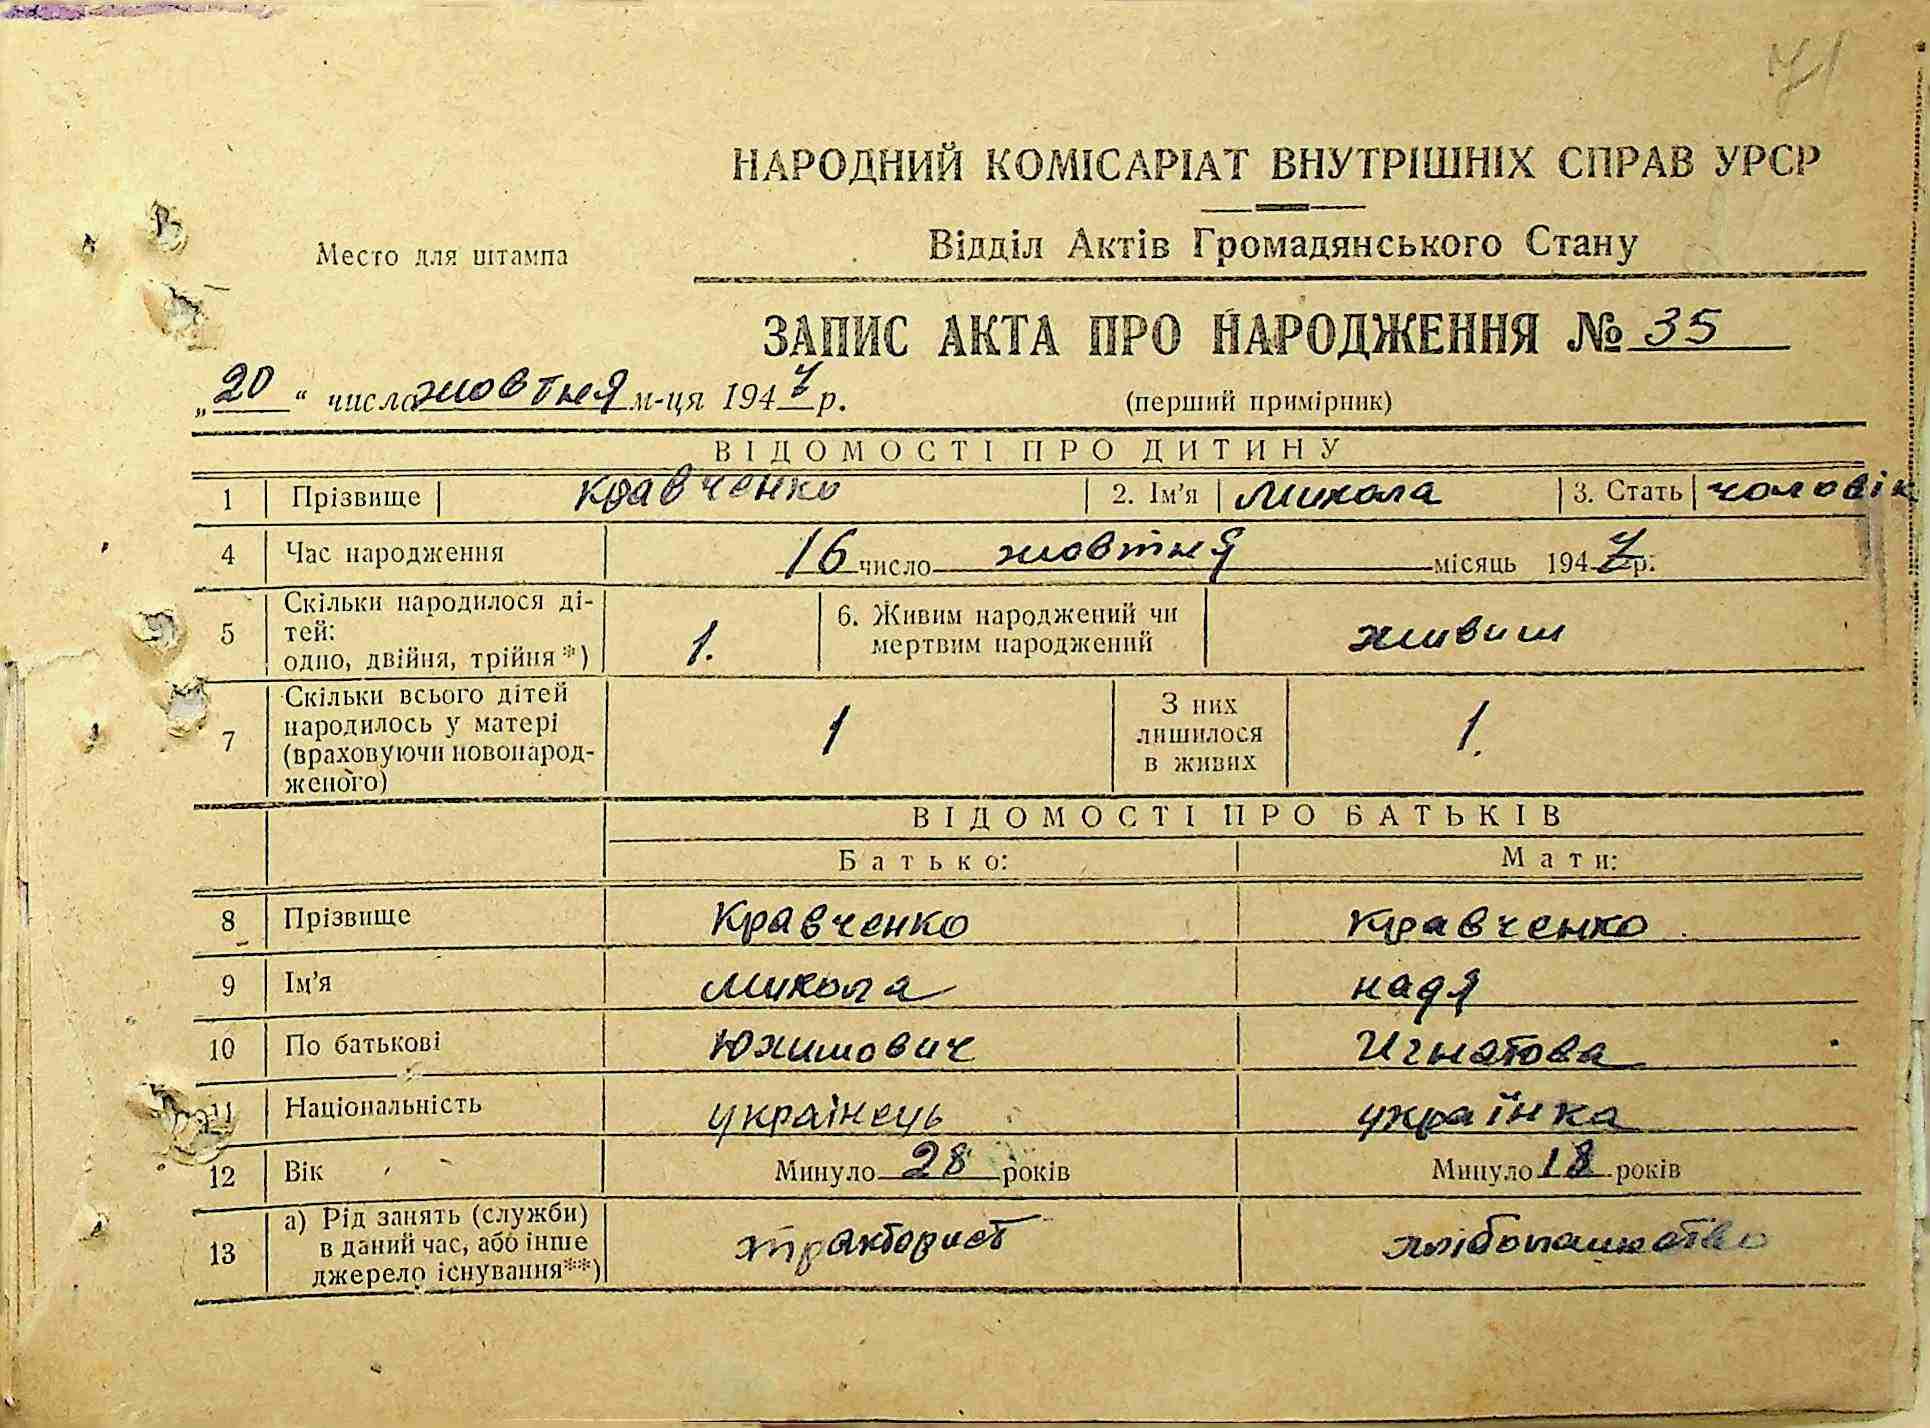 71
НАРОДНИЙ КОМІСАРІАТ ВНУТРІШНІХ СПРАВ УРСР
Место для штампа
Відділ Актів Громадянського Стану
ЗАПИС АКТА ПРО НАРОДЖЕННЯ № 35
„20“ число жовтня м-ця 1947 р.
(перший примірник)
ВІДОМОСТІ ПРО ДИТИНУ
1 Прізвище Кравченко 2. Ім'я Микола 3. Стать чоловік
4 Час народження 16 число жовтня місяць 1947 р.
5 Скільки народилося ді-
тей:
одно, двійня, трійня *) 1. 6. Живим народжений чи
мертвим народжений живим
7 Скільки всього дітей
народилось у матері
(враховуючи новонарод-
женого) 1 З них
лишилося
в живих 1.
ВІДОМОСТІ ПРО БАТЬКІВ
Батько: Мати:
8 Прізвище Кравченко Кравченко
9 Ім'я Микола надя
10 По батькові Юхимович Игнатова
11 Національність українець українка
12 Вік Минуло 28 років Минуло 18 років
13 а) Рід занять (служби)
в даний час, або інше
джерело існування**) тракторист хлібопашество